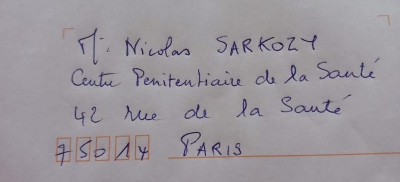 Mr. Nicolas SARKOZY
Centre Penitentiaire de la Santé
42 rue de la Santé
75014 PARIS